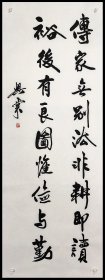 傳家無別法非耕即讀
裕後有良圖惟儉與勤